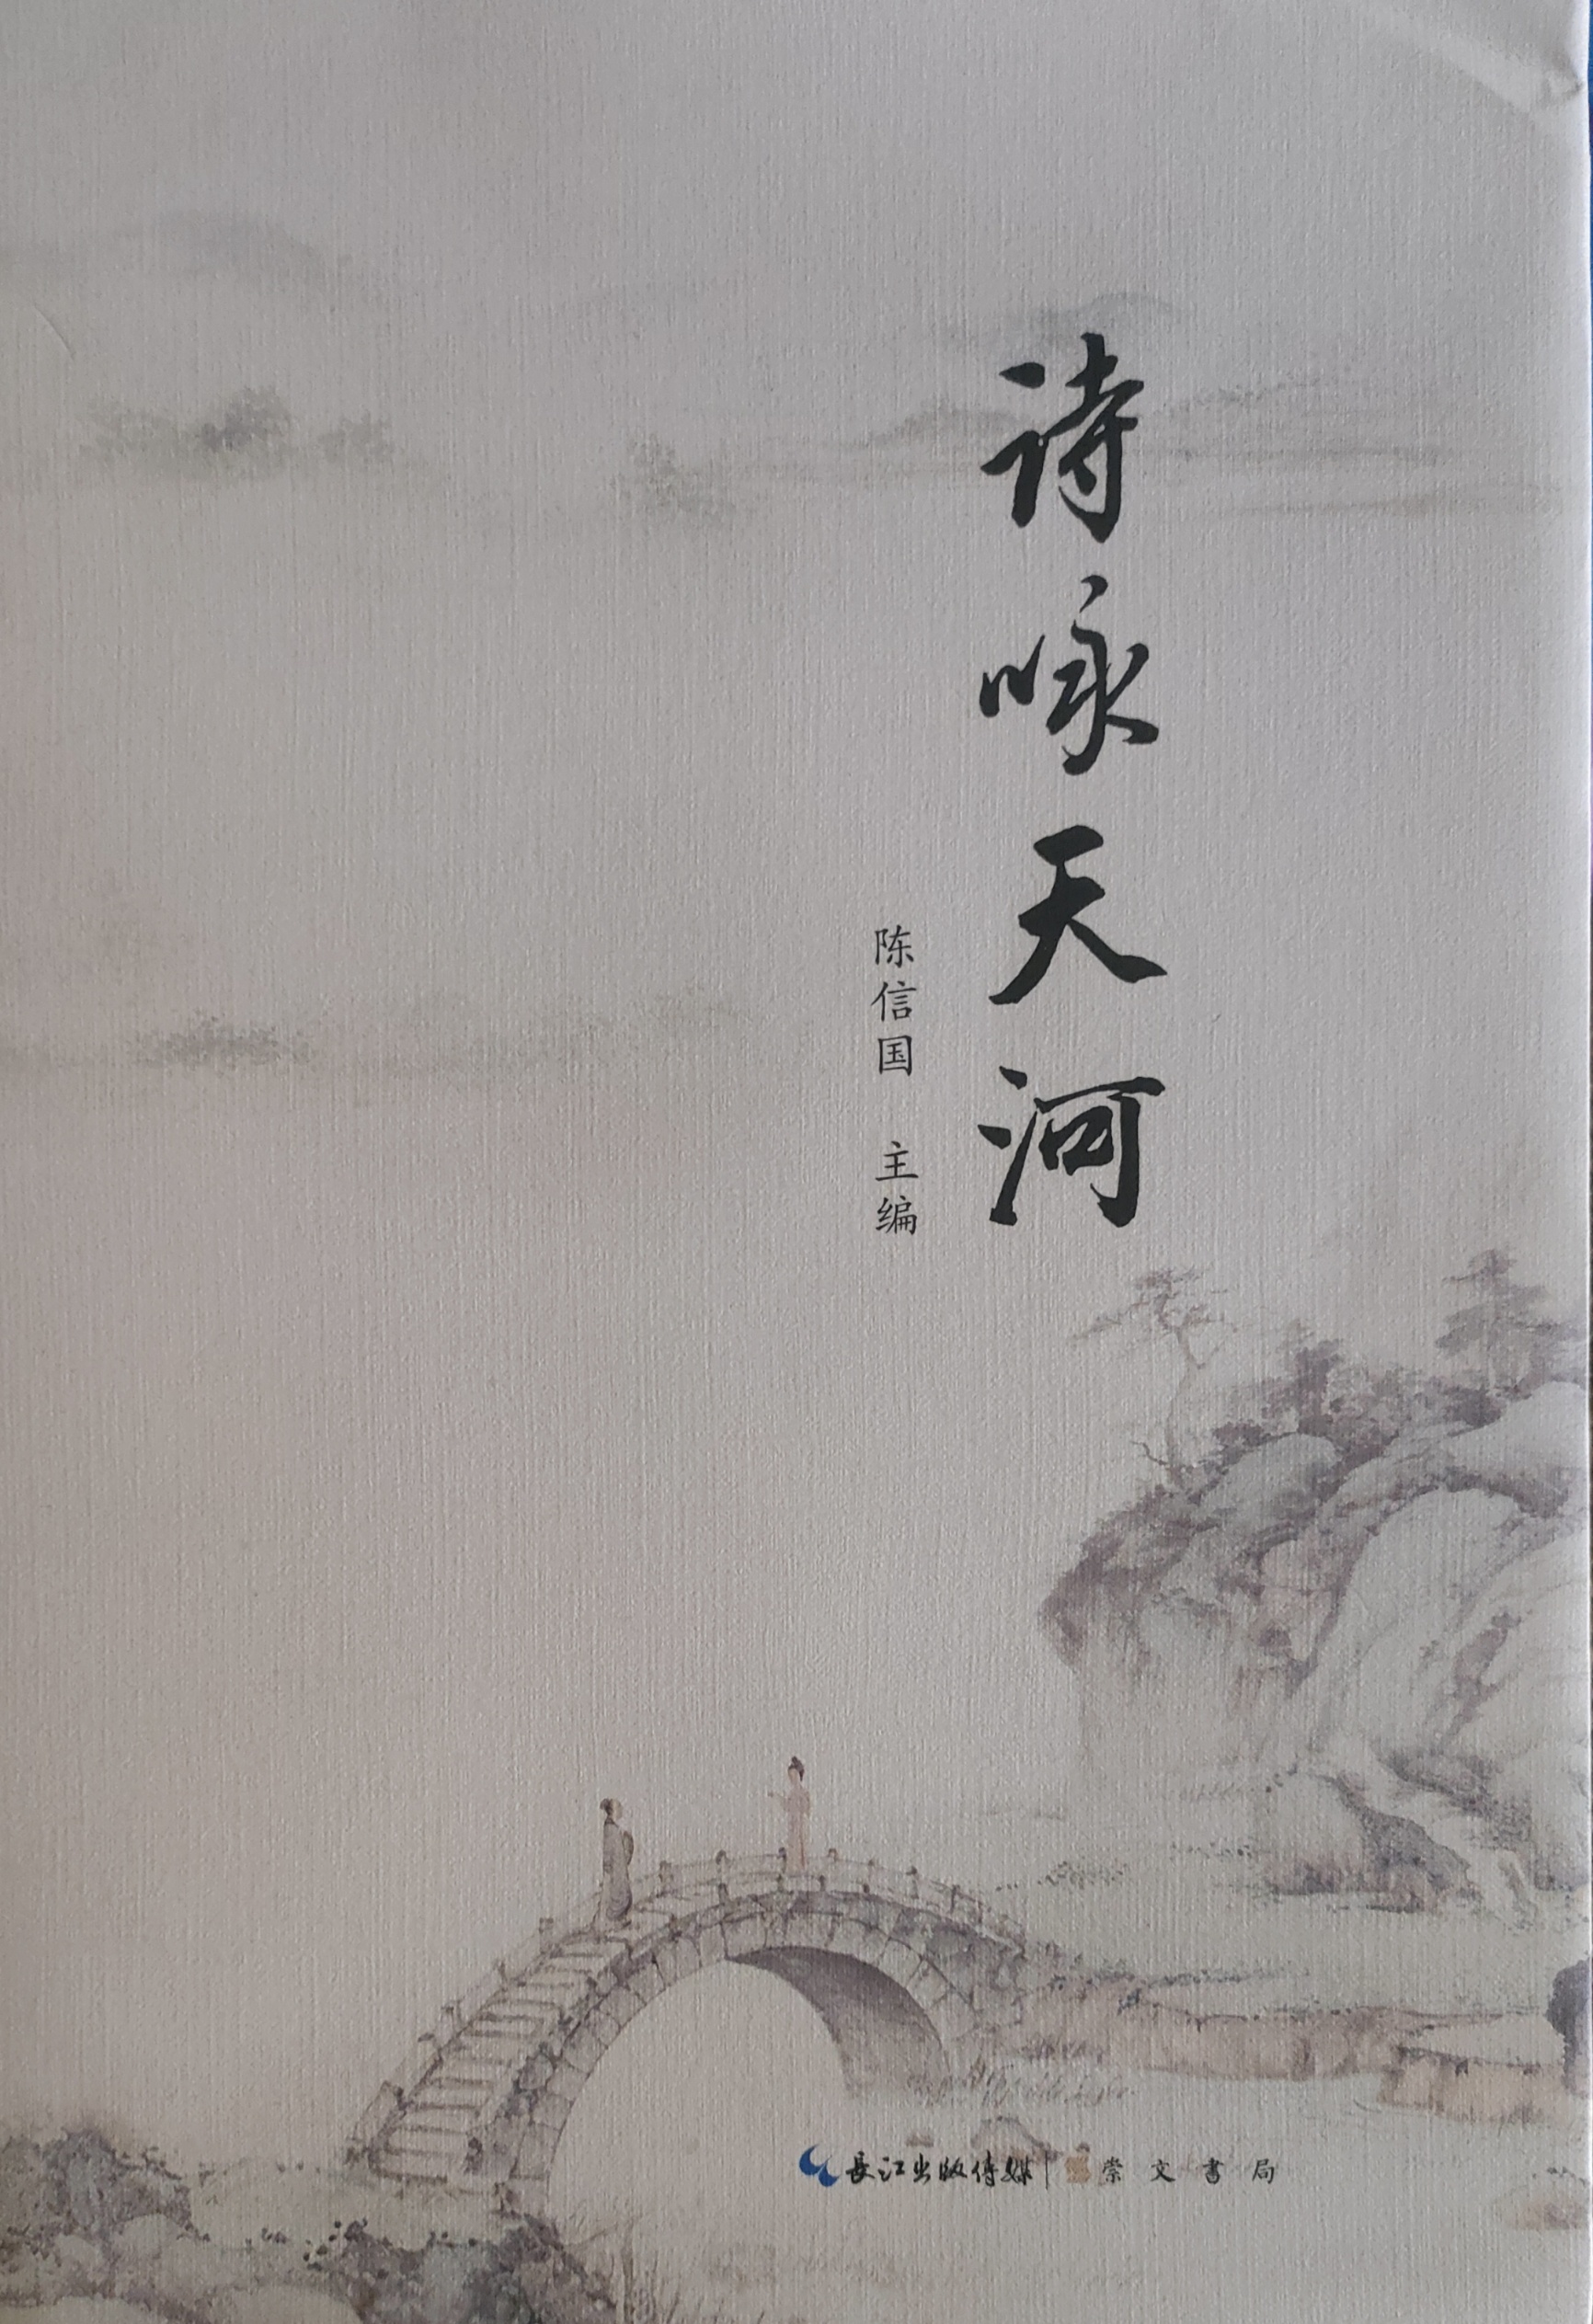 诗咏天河
陈信国 主编
長江出版传媒 崇文書局